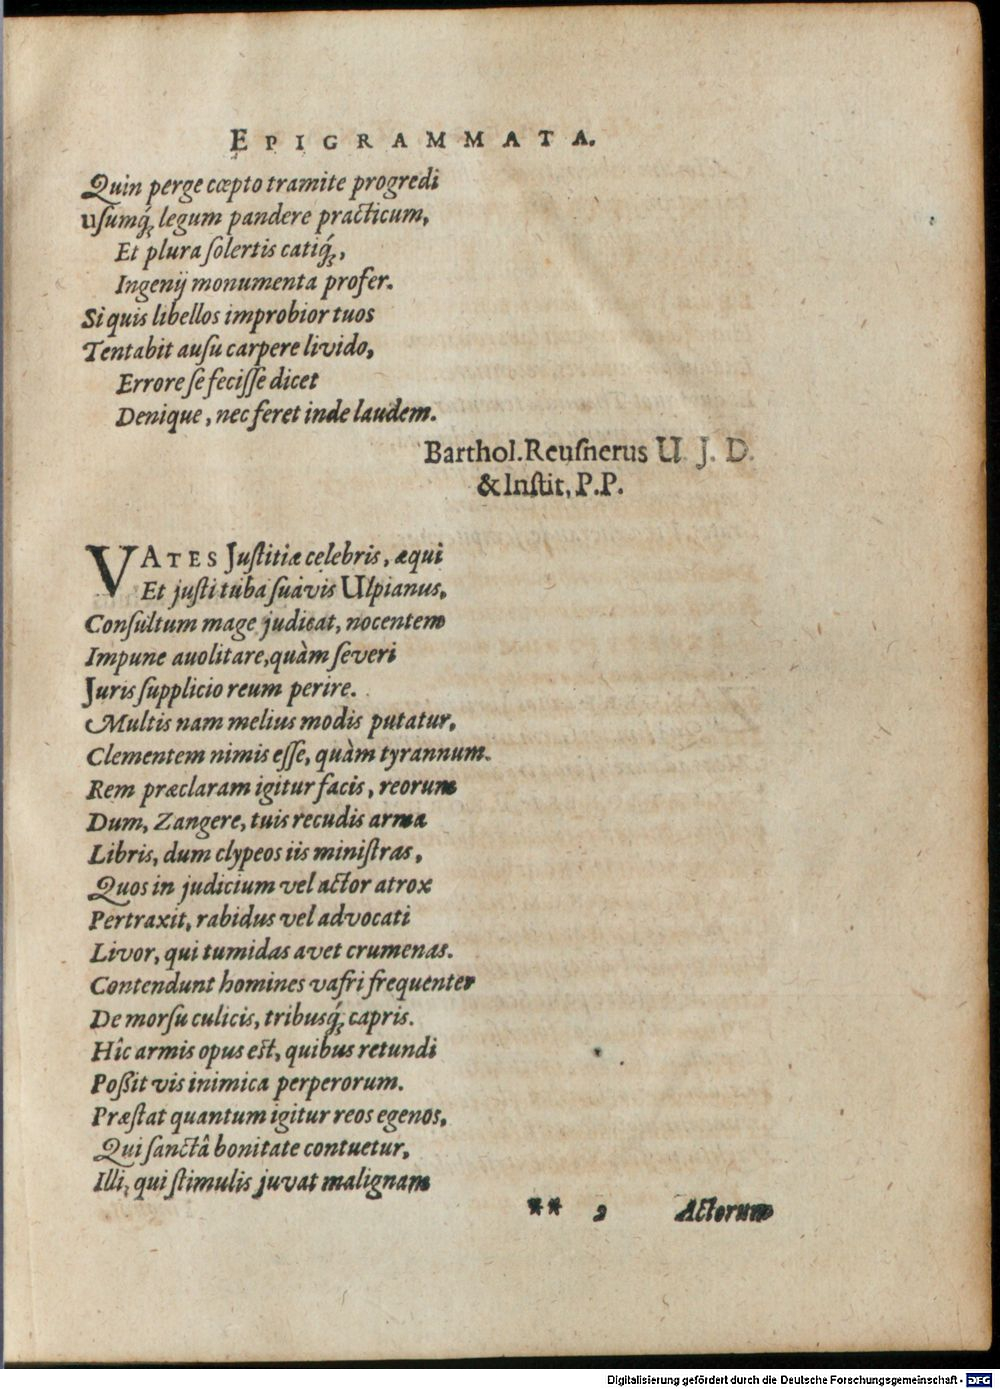 EPIGRAMMATA.
Quin perge cœpto tramite progredi
uſumq́; legum pandere practicum,
Et plura ſolertis catiq́;,
Ingenij monumenta profer.
Si quis libellos improbior tuos
Tentabit auſu carpere livido,
Errore ſe feciſſe dicet
Denique, nec feret inde laudem.
Barthol. Reuſnerus U. J. D.
& Inſtit, P. P.
VATES Juſtitiæ celebris, æqui
Et juſti tuba ſuavis Ulpianus,
Conſultum mage judicat, nocentem
Impune avolitare, quàm ſeveri
Juris ſupplicio reum perire.
Multis nam melius modis putatur,
Clementem nimis eſſe, quàm tyrannum.
Rem præclaram igitur facis, reorum
Dum, Zangere, tuis recudis arma
Libris, dum clypeos iis miniſtras,
Quos in judicium vel actor atrox
Pertraxit, rabidus vel advocati
Livor, qui tumidas avet crumenas.
Contendunt homines vafri frequenter
De morſu culicis, tribusq́; capris.
Hîc armis opus eſt, quibus retundi
Poſſit vis inimica perperorum.
Præſtat quantum igitur reos egenos,
Qui ſanctâ bonitate contuetur,
Illi, qui ſtimulis juvat malignam
** 2 Actorum
Digitalisierung gefördert durch die Deutsche Forschungsgemeinschaft - DFG